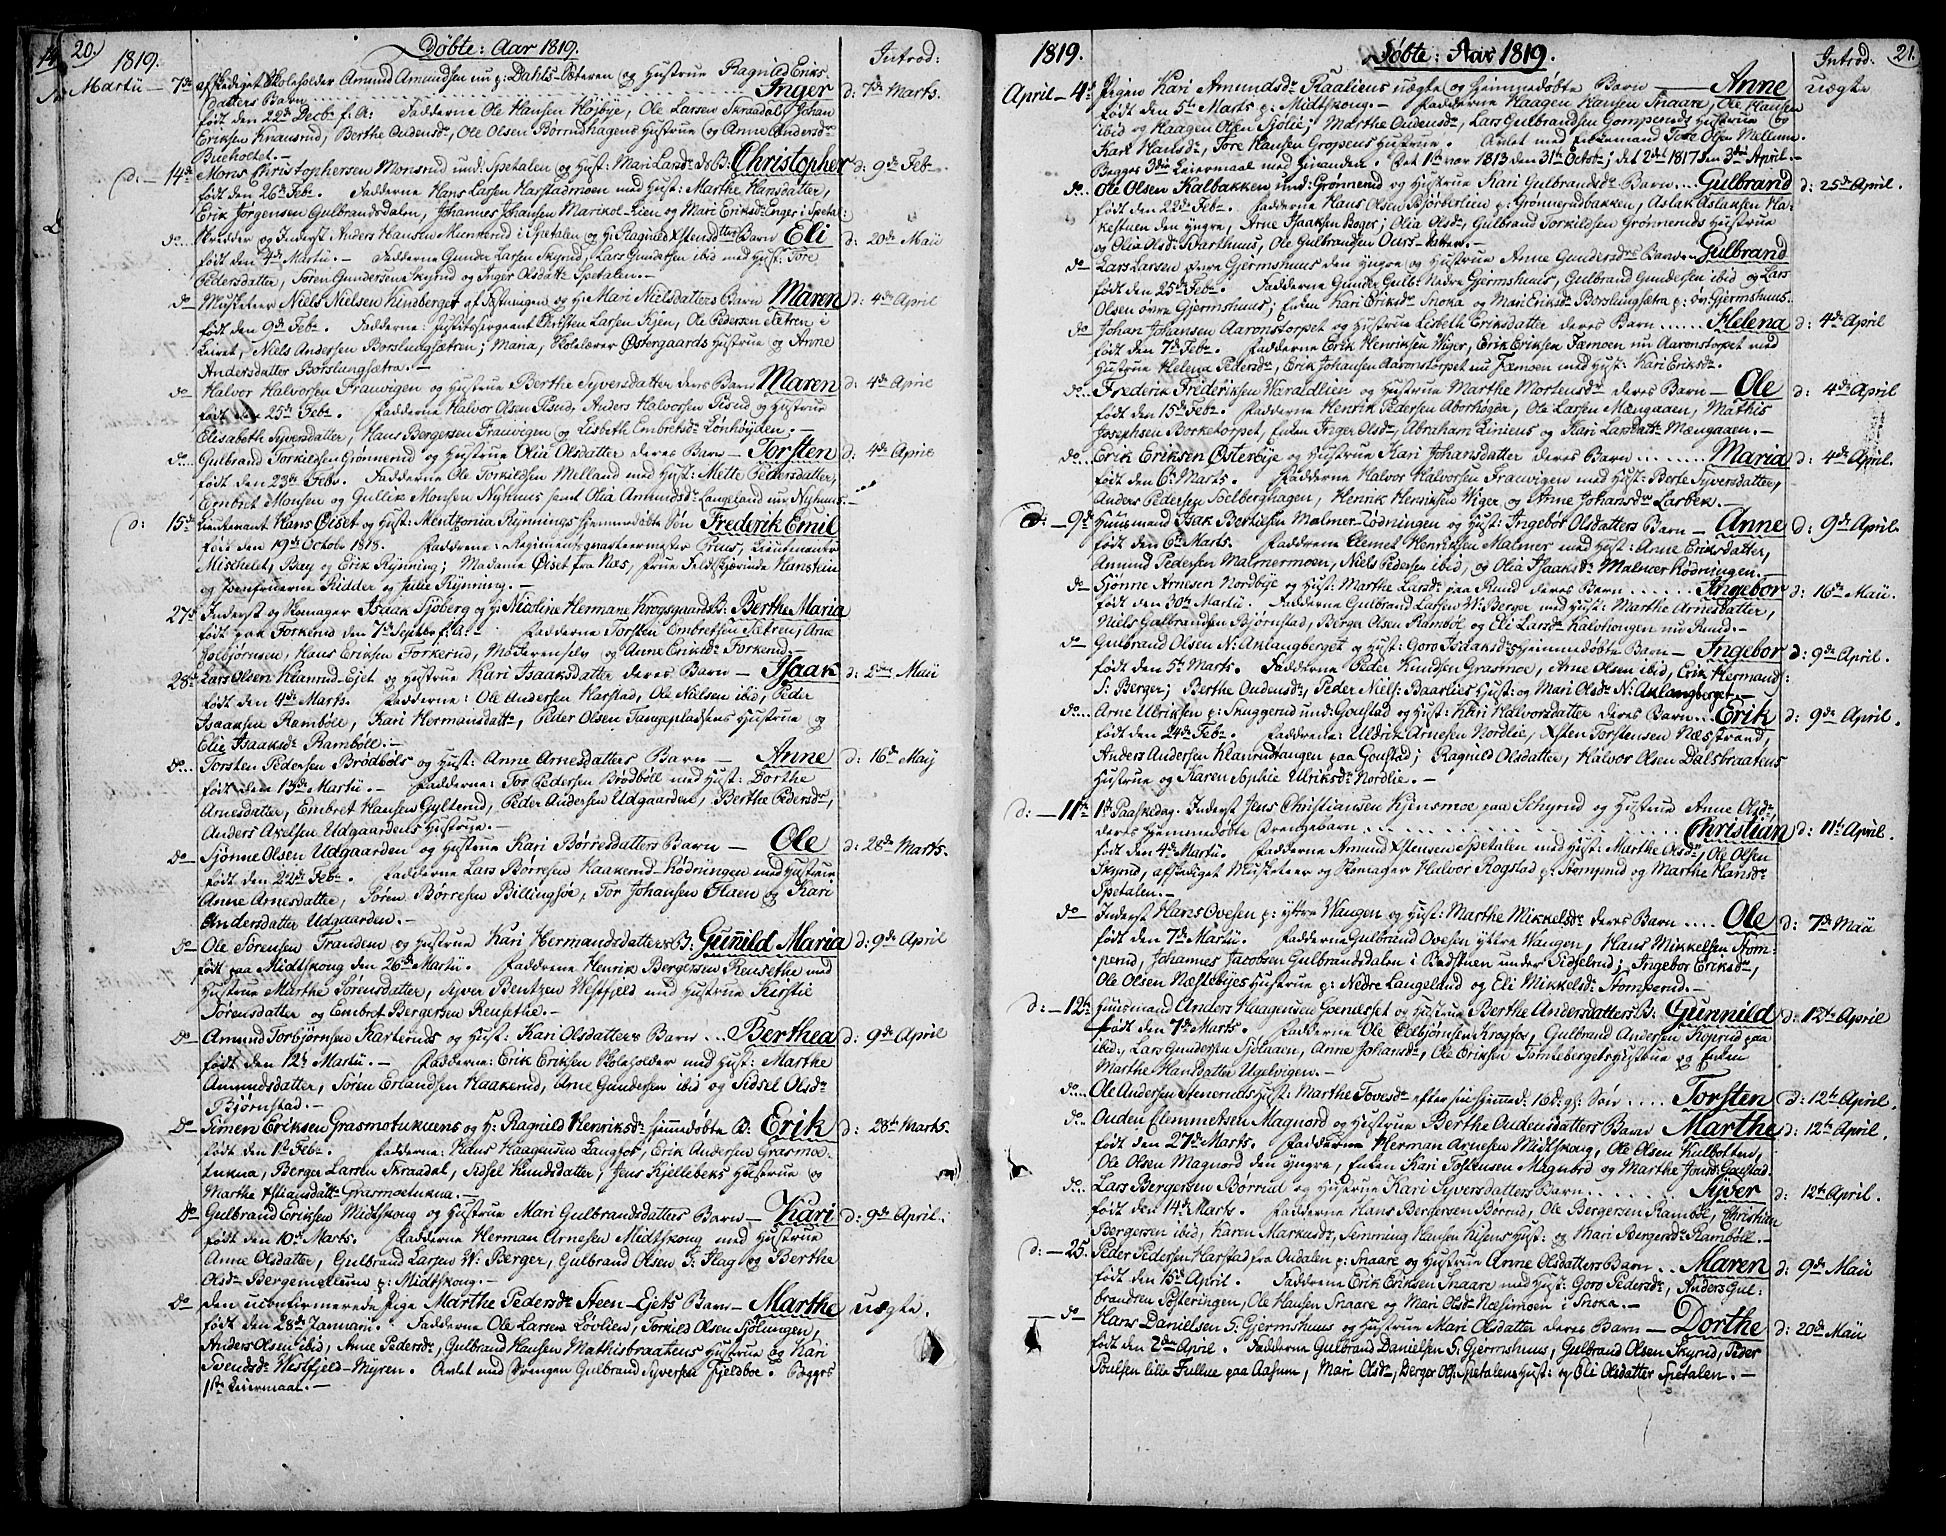 20.
1819.
Døbte: Aar 1819.
Introd:
Martii — 7de afskediget Skoleholder Amund Amundsen nu p: Dahls-Sæteren og Hustrue Ragnild Eriks-
datters Barn Inger d: 7de Marts.
født den 22de Decbr f. A: Fadderne Ole Hansen Højbye, Ole Larsen Skradal, Johan
Eriksen Knausrud, Berthe Oudensdr, Ole Olsen Børrudhagens Hustrue og Anne Andersdr
Bueholtet.—
d: — 14de Mons Christophersen Monsrud und: Spetalen og Hust: Mari Larsdr ds B: Christopher d: 9de Febr
født den 26de Febr. Fadderne Hans Larsen Harstadmoen med Hust: Marthe Hansdatter,
Erik Jørgensen Gulbrandsdalen, Johannes Johansen Marikol-Lien og Mari Eriksdr Enger i Spetal:
do Skredder og Inderst Anders Hansen Munkerud i Spetalen og H: Ragnild Xstensdatters Barn Eli d: 20de Maii
født den 4de Martii. Fadderne Gunder Larsen Skyrud, Lars Gundersen ibid med Hust: Tore
Pedersdatter, Søren Gundersen Skyrud og Inger Olsdatr Spetalen.—
do Musketeer Niels Nielsen Kindberget af Festningen og H: Mari Nielsdatters Barn Maren d: 4de April
født den 9de Febr. Fadderne: Justitssergeant Christen Larsen Kjen, Ole Pedersen Setren i
Leiret, Niels Andersen Borslungsætren; Maria, Skolelærer Østergaards Hustrue og Anne
Andersdatter Borslungsætra.—
do Halvor Halvorsen Frauvigen og Hustrue Berthe Syversdatter deres Barn Maren d: 4de April
født den 25de Febr. Fadderne Halvor Olsen Sisud, Anders Halvorsen Sisud og Hustrue
Elisabeth Syversdatter, Hans Bergersen Frauvigen og Lisbeth Embretsdr Lønhøyden.—
do Gulbrand Torkildsen Grønnerud og Hustrue Olia Olsdatter deres Barn — Torsten d: 4de April
født den 23de Febr. Fadderne Ole Torkildsen Melland med Hust: Mette Pedersdatter,
Embret Monsen og Gullik Monsen Nyhuus samt Olia Amundsdr Langeland nu Nyhuus—
d: 15de Lieutenant Hans Øiset og Hust: Mentzonia Rynnings hjemmedøbte Søn Frederik Emil
født den 19de Octobr 1818. Fadderne: Regimentsqvarteermester Prus, Lieutenanter
Michelet, Bay og Erik Rynning; Madame Øiset fra Næs, Frue Feldtskjærinde Hanstein
og Jomfruerne Ridder og Julie Rynning.—
27de Inderst og Skomager Isaak Sjøberg og H: Nicoline Hermane Krogsgaards B: Berthe Maria
født paa Forkerud den 7de Septbr f: A:— Fadderne Torsten Embretsen Sætren, Arne
Colbjørnsen, Hans Eriksen Forkerud, Moderen selv og Anne Eriksdr Forkerud.—
28de Lars Olsen Klanrud-Ejet og Hustrue Kari Isaaksdatter deres Barn — Isaak d: 2den Maii
født den 4de Marts. Fadderne: Ole Andersen Harstad, Ole Nielsen ibid, Peder
Isaaksen Rambøle, Kari Hermansdatr, Peder Olsen Tangepladsens Hustrue og
Elie Isaaksdr Rambøll.—
do Torsten Pedersen Brødbøls og Hust: Anne Arnesdatters Barn — Anne d: 16de May
født den 13de Martii. Fadderne: Tor Pedersen Brødbøll med Hust: Dorthe
Arnesdatter, Embret Hansen Gylterud, Peder Andersen Udgaarden, Berthe Pedersdr,
Anders Axelsen Udgaardens Hustrue.—
do Sjønne Olsen Udgaarden og Hustrue Kari Børresdatters Barn — Ole d: 28de Marts.
født den 22de Febr. Fadderne Lars Børresen Kaakerud-Rødningen med Hustrue
Anne Arnesdatter, Søren Børresen Billingsjøe, Tor Johansen Flaen og Kari
Andersdatter Udgaarden.—
do Ole Sørensen Tranden og Hustrue Kari Hermandsdatters B: Gunnild Maria d: 9de April
født paa Midtskoug den 26de Martii. Fadderne Henrik Bergersen Reusethe med
Hustrue Marthe Sørensdatter, Syver Bentzen Westfjeld med Hustrue Kirstie
Sørensdatter og Embret Bergersen Reusethe.—
do Amund Torbjørnsen Kasteruds og Hust: Kari Olsdatters Barn Berthea d: 9de April
født den 12te Martii.— Fadderne: Erik Eriksen Skoleholder med Hust: Marthe
Amundsdatter, Søren Erlandsen Haakerud, Arne Gundersen ibid og Sidsel Olsdr
Bjørnstad.—
do Simen Eriksen Grasmotukuens og H: Ragnild Henriksdr hjemmedøbte B: Erik d: 28de Marts.
født den 1te Febr. Fadderne: Hans Haagensen Langfos, Erik Andersen Grasmo-
tukna, Berger Larsen Skraadal, Sidsel Knudsdatter, Jens Kjellebeks Hustrue og
Marthe Xstiansdatr Grasmoetukna.—
do Gulbrand Eriksen Midtskoug og Hustrue Mari Gulbrandsdatters Barn — Kari d: 9de April.
født den 10de Marts. Fadderne Herman Arnesen Midtskoug med Hustrue
Anne Olsdatter, Gulbrand Larsen W: Berger, Gulbrand Olsen S: Flag og Berthe
Olsdr Bergemellum p: Midtskoug.—
do den uconfirmerede Pige Marthe Pedersdr Steen-Ejets Barn — Marthe uægte.
født den 28de Januari. Fadderne Ole Larsen Løvlien, Torkild Olsen Sjølungen,
Anders Olsen ibid, Anne Pedersdr, Gulbrand Hansen Mathisbraatens Hustrue og Kari
Svendsdr Westfjeld-Myren. Avlet med Drengen Gulbrand Syversen Fjeldboe. Begges
1ste Leiermaal.—
1819.
Døbte: Aar 1819.
Introd.
21.
April — 4de Pigen Kari Amundsdr Raaliens uægte og Hjemmedøbte Barn — Anne uægte
født den 5te Marts p: Midtskoug.— Fadderne Haagen Hansen Snaare, Ole Hansen
ibid og Haagen Olsen Sjølie; Marthe Oudensdr, Lars Gulbrandsen Gompenes Hustrue og
Kari Hansdr, Tore Hansen Gropens Hustrue. Avlet med Enkemand Tore Olsen Mellema.
Begges 3die Leiermaal med hinanden. Det 1te var 1813 den 31te Octobr; det 2det 1817 den 3die April.—
do Ole Olsen Kalbakken und: Grønnerud og Hustrue Kari Gulbrandsdr Barn Gulbrand d: 25de April.
født den 22de Febr. Fadderne Hans Olsen Bjørbertien p: Grønnerudbakken, Aslak Aslaksen Ha-
kestuen den yngre, Arne Isaaksen Boger; Olia Olsdr, Gulbrand Torkildsen Grønneruds Hustrue
og Olia Olsdr Svarthuus, Ole Gulbrandsen Ours-datter.—
do Lars Larsen øvre Gjermshuus den yngre og Hustrue Anne Gundersdr Barn Gulbrand
født den 25de Febr. Fadderne Gunder Gulb: Nedre Gjermshuus, Gulbrand Gundersen ibid og Lars
Olsen øvre Gjermshuus; Enken Kari Eriksdr Snoka og Mari Eriksdr Borslungsætra p: øv: Gjermshuus.
do Johan Johansen Aaronstorpet og Hustrue Lisbeth Eriksdatter deres Barn Helena d: 4de April
født den 7de Febr. Fadderne Erik Henriksen Wiger, Erik Eriksen Fæmoen nu Aaronstorpet med
Hustrue Helena Pedersdr, Erik Johansen Aaronstorpet nu Fæmoen med Hust: Kari Eriksdr.
do Frederik Frederiksen Waraldlien og Hustrue Marthe Mortensdr deres Barn — Ole d: 4de April
født den 15de Febr. Fadderne Henrik Pedersen Aborhøgda, Ole Larsen Mængaaen, Mathis
Josephsen Borketorpet, Enken Inger Olsdr, Abraham Liniens og Kari Larsdatr Mængaaen.—
do Erik Eriksen Østerbye og Hustrue Kari Johansdatter deres Barn Maria d: 4de April.
født den 6te Marts. Fadderne Halvor Halvorsen Frauvigen med Hust: Berte Syversdatter,
Anders Pedersen Solberghagen, Henrik Henriksen Wiger og Anne Johansdr Larbek.
d: 9de Huusmand Isak Bertilsen Malmer-Rødningen og Hust: Ingebor Olsdatters Barn — Anne d: 9de April.
født den 6te Marts. Fadderne Clemet Henriksen Malmer med Hust: Anne Eriksdatter,
Amund Pedersen Malmermoen, Niels Pedersen ibid, og Olia Isaaksdr Malmer Rødningen.—
do Sjønne Arnesen Nordbye og Hust: Marthe Larsdr paa Ruud deres Barn Ingebor d: 16de Maii.
født den 30te Martii. Fadderne Gulbrand Larsen W: Berger med Hust: Marthe Arnesdatter,
Niels Gulbrandsen Bjørnstad, Berger Olsen Rambøl og Eli Larsdr Kalvhougen nu Ruud.—
do Gulbrand Olsen N: Anlangberget og Hust: Goro Isdaksdr hjemmedøbte Barn — Ingebor d: 9de April.
født den 5te Marts. Fadderne Peder Knudsen Grasmoe, Arne Olsen ibid, Erik Hermand:
S: Berger; Berthe Oudensdr, Peder Niels: Baarlies Hust: og Mari Olsdr N: Anlangberget.—
do Arne Ulriksen p: Skuggerud und: Goustad og Hust: Kari Halvorsdatter deres Barn Erik d: 9de April.
født den 24de Febr. Fadderne: Uldrik Arnesen Nordlie, Xsten Torstensen Næstrand,
Anders Andersen Klanrudtangen paa Goustad; Ragnild Olsdatter, Halvor Olsen Dalsbraatens
Hustrue og Karen Sophie Ulriksdr Nordlie.—
d: — 11te 1te Paaskedag. Inderst Jens Christiansen Kjensmoe paa Schyrud og Hustrue Anne Olsdr,
deres Hjemmedøbte Drengebarn Christian d: 11te April.
født den 4de Martii. Fadderne Amund Xstensen Spetalen med Hust: Marthe Olsdr, Ole Olsen
Skyrud, afskediget Musketeer og Skomager Halvor Rogstad p: Stomperud og Marthe Hansdr
Spetalen.—
do Inderst Hans Ovesen p: yttre Wangen og Hust: Marthe Mikkelsdr deres Barn Ole d: 7de Maii
født den 7de Martii. Fadderne Gulbrand Ovesen yttre Wangen, Hans Mikkelsen Stom-
perud, Johannes Jacobsen Gulbrandsdalen i Badstuen under Sidselrud; Ingebor Eriksdr,
Ole Olsen Næstebyes Hustrue p: Nedre Langeland og Eli Mikkelsdr Stomperud.—
d: — 12te Huusmand Anders Haagensen Goenæset og Hustrue Berthe Andersdatters B: Gunnild d: 12te April
født den 7de Marts. Fadderne Ole Colbjørnsen Krogfos, Gulbrand Andersen Kopperud paa
ibid, Lars Gundersen Sjølnaen, Anne Johansdr, Ole Eriksen Tomlebergets Hustrue og Enken
Marthe Hansdatter Ugelvigen.—
do Ole Andersen Steneruds Hust: Marthe Tovesdr efter sin hjemmed. 1ø D: gl: Søn Torsten d: 12te April.
do Ouden Clemmetsen Magnord og Hustrue Berthe Oudensdatters Barn Marthe d: 12te April.
født den 27de Marts. Fadderne Herman Arnesen Midtskoug, Ole Olsen Kulbotten,
Ole Olsen Magnord den yngre, Enken Kari Tostensen Magnord og Marthe Jonsd: Goustad.
do Lars Bergersen Børrud og Hustrue Kari Syversdatters Barn Syver d: 12te April.
født den 14de Marts. Fadderne Hans Bergersen Børrud, Ole Bergersen Rambøl, Christian
Bergersen ibid, Karen Markusdr, Femming Hansen Kijens Hust: og Mari Bergersdr Rambøll.—
d: — 25. Peder Pedersen Harstad fra Oudalen p: Snaare og Hustrue Anne Olsdatters Barn Maren d: 9de Maii
født den 15de April. Fadderne Erik Eriksen Snaare med Hust: Goro Pedersdr, Anders Gul-
brandsen Posteringen, Ole Hansen Snaare og Mari Olsdr Næsimoen i Snoka.—
do Hans Danielsen S: Gjermshuus og Hustrue Mari Olsdatter deres Barn — Dorthe d: 20de Maii
født den 2den April. Fadderne Gulbrand Danielsen S: Gjermshuus, Gulbrand Olsen Skyrud, Peder
Poulsen Lille Fulline paa Aasum, Mari Olsdr, Berger Ols: Spetalens Hust: og Eli Olsdatter Spetalen.—